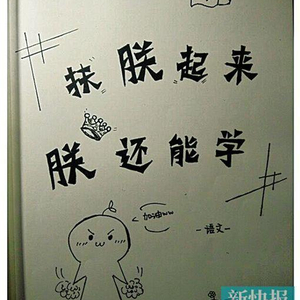 扶朕起来
朕还能学
加油ww
-语文-
新快报